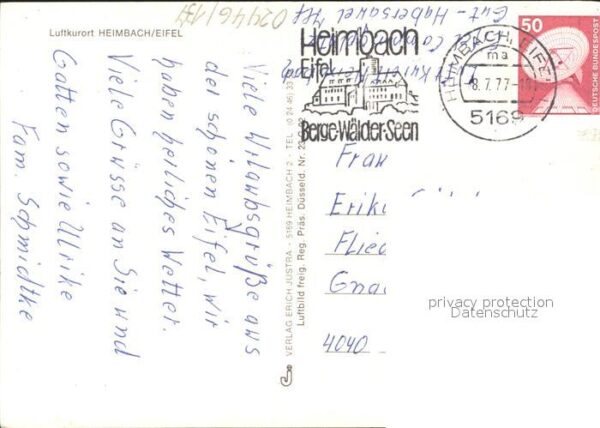 Luftkurort HEIMBACH/EIFEL
Viele Urlaubsgrüße aus
der schönen Eifel, wir
haben herliches Wetter.
Viele Grüsse an Sie und
Gatten sowie Ulrike
Fam. Schmidtke
VERLAG ERICH JUSTRA - 5169 HEIMBACH 2 - TEL.
Luftbild freig. Reg. Präs. Düsseld. Nr.
Gut - Habersauel
Heimbach
Eifel
Berge-Wälder-Seen
HEIMBACH, EIFEL
ma
8.7.77
5169
50
DEUTSCHE BUNDESPOST
Frau
Erik
Flie
Gna
4040
privacy protection
Datenschutz